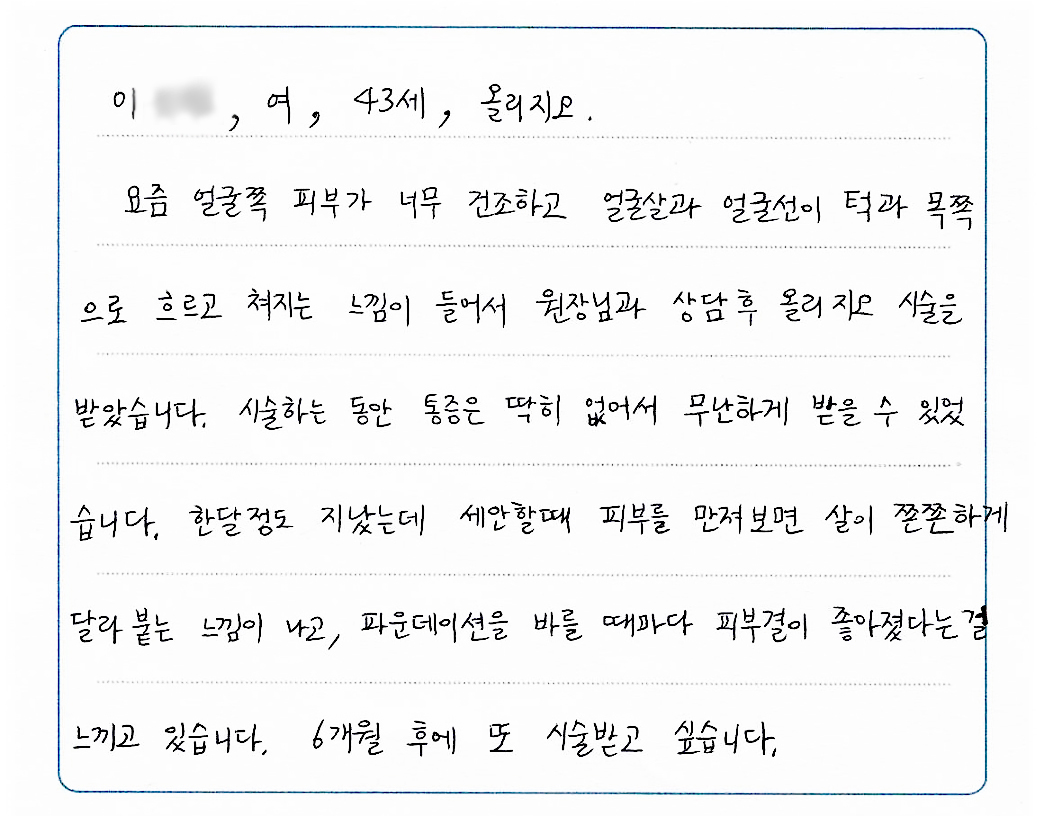 이 , 여, 43세, 올리지오.
요즘 얼굴쪽 피부가 너무 건조하고 얼굴살과 얼굴선이 턱과 목쪽
으로 흐르고 쳐지는 느낌이 들어서 원장님과 상담후 올리지오 시술을
받았습니다. 시술하는 동안 통증은 딱히 없어서 무난하게 받을 수 있었
습니다. 한달정도 지났는데 세안할때 피부를 만져보면 살이 쫀쫀하게
달라 붙는 느낌이 나고, 파운데이션을 바를 때마다 피부결이 좋아졌다는걸
느끼고 있습니다. 6개월 후에 또 시술받고 싶습니다.